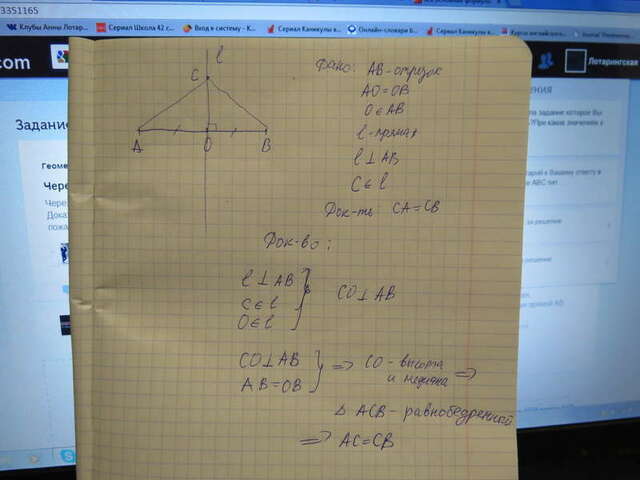 3351165
Клубы Анны Лотар...
Сериал Школа 42 г...
Вход в систему - К...
Сериал Каникулы в...
Онлайн-словари б...
Сериал Каникулы в...
.com
Лотарингская
Задание
Геоме
Чере
Чере
Дока
пожа
l
C
A
O
B
Дано: AB - отрезок
AO = OB
O ∈ AB
l - прямая
l ⊥ AB
C ∈ l
Док-ть: CA = CB
Док-во:
l ⊥ AB
C ∈ l
O ∈ l
CO ⊥ AB
CO ⊥ AB
AB = OB
=> CO - высота
и медиана =>
Δ ACB - равнобедренный
=> AC = CB